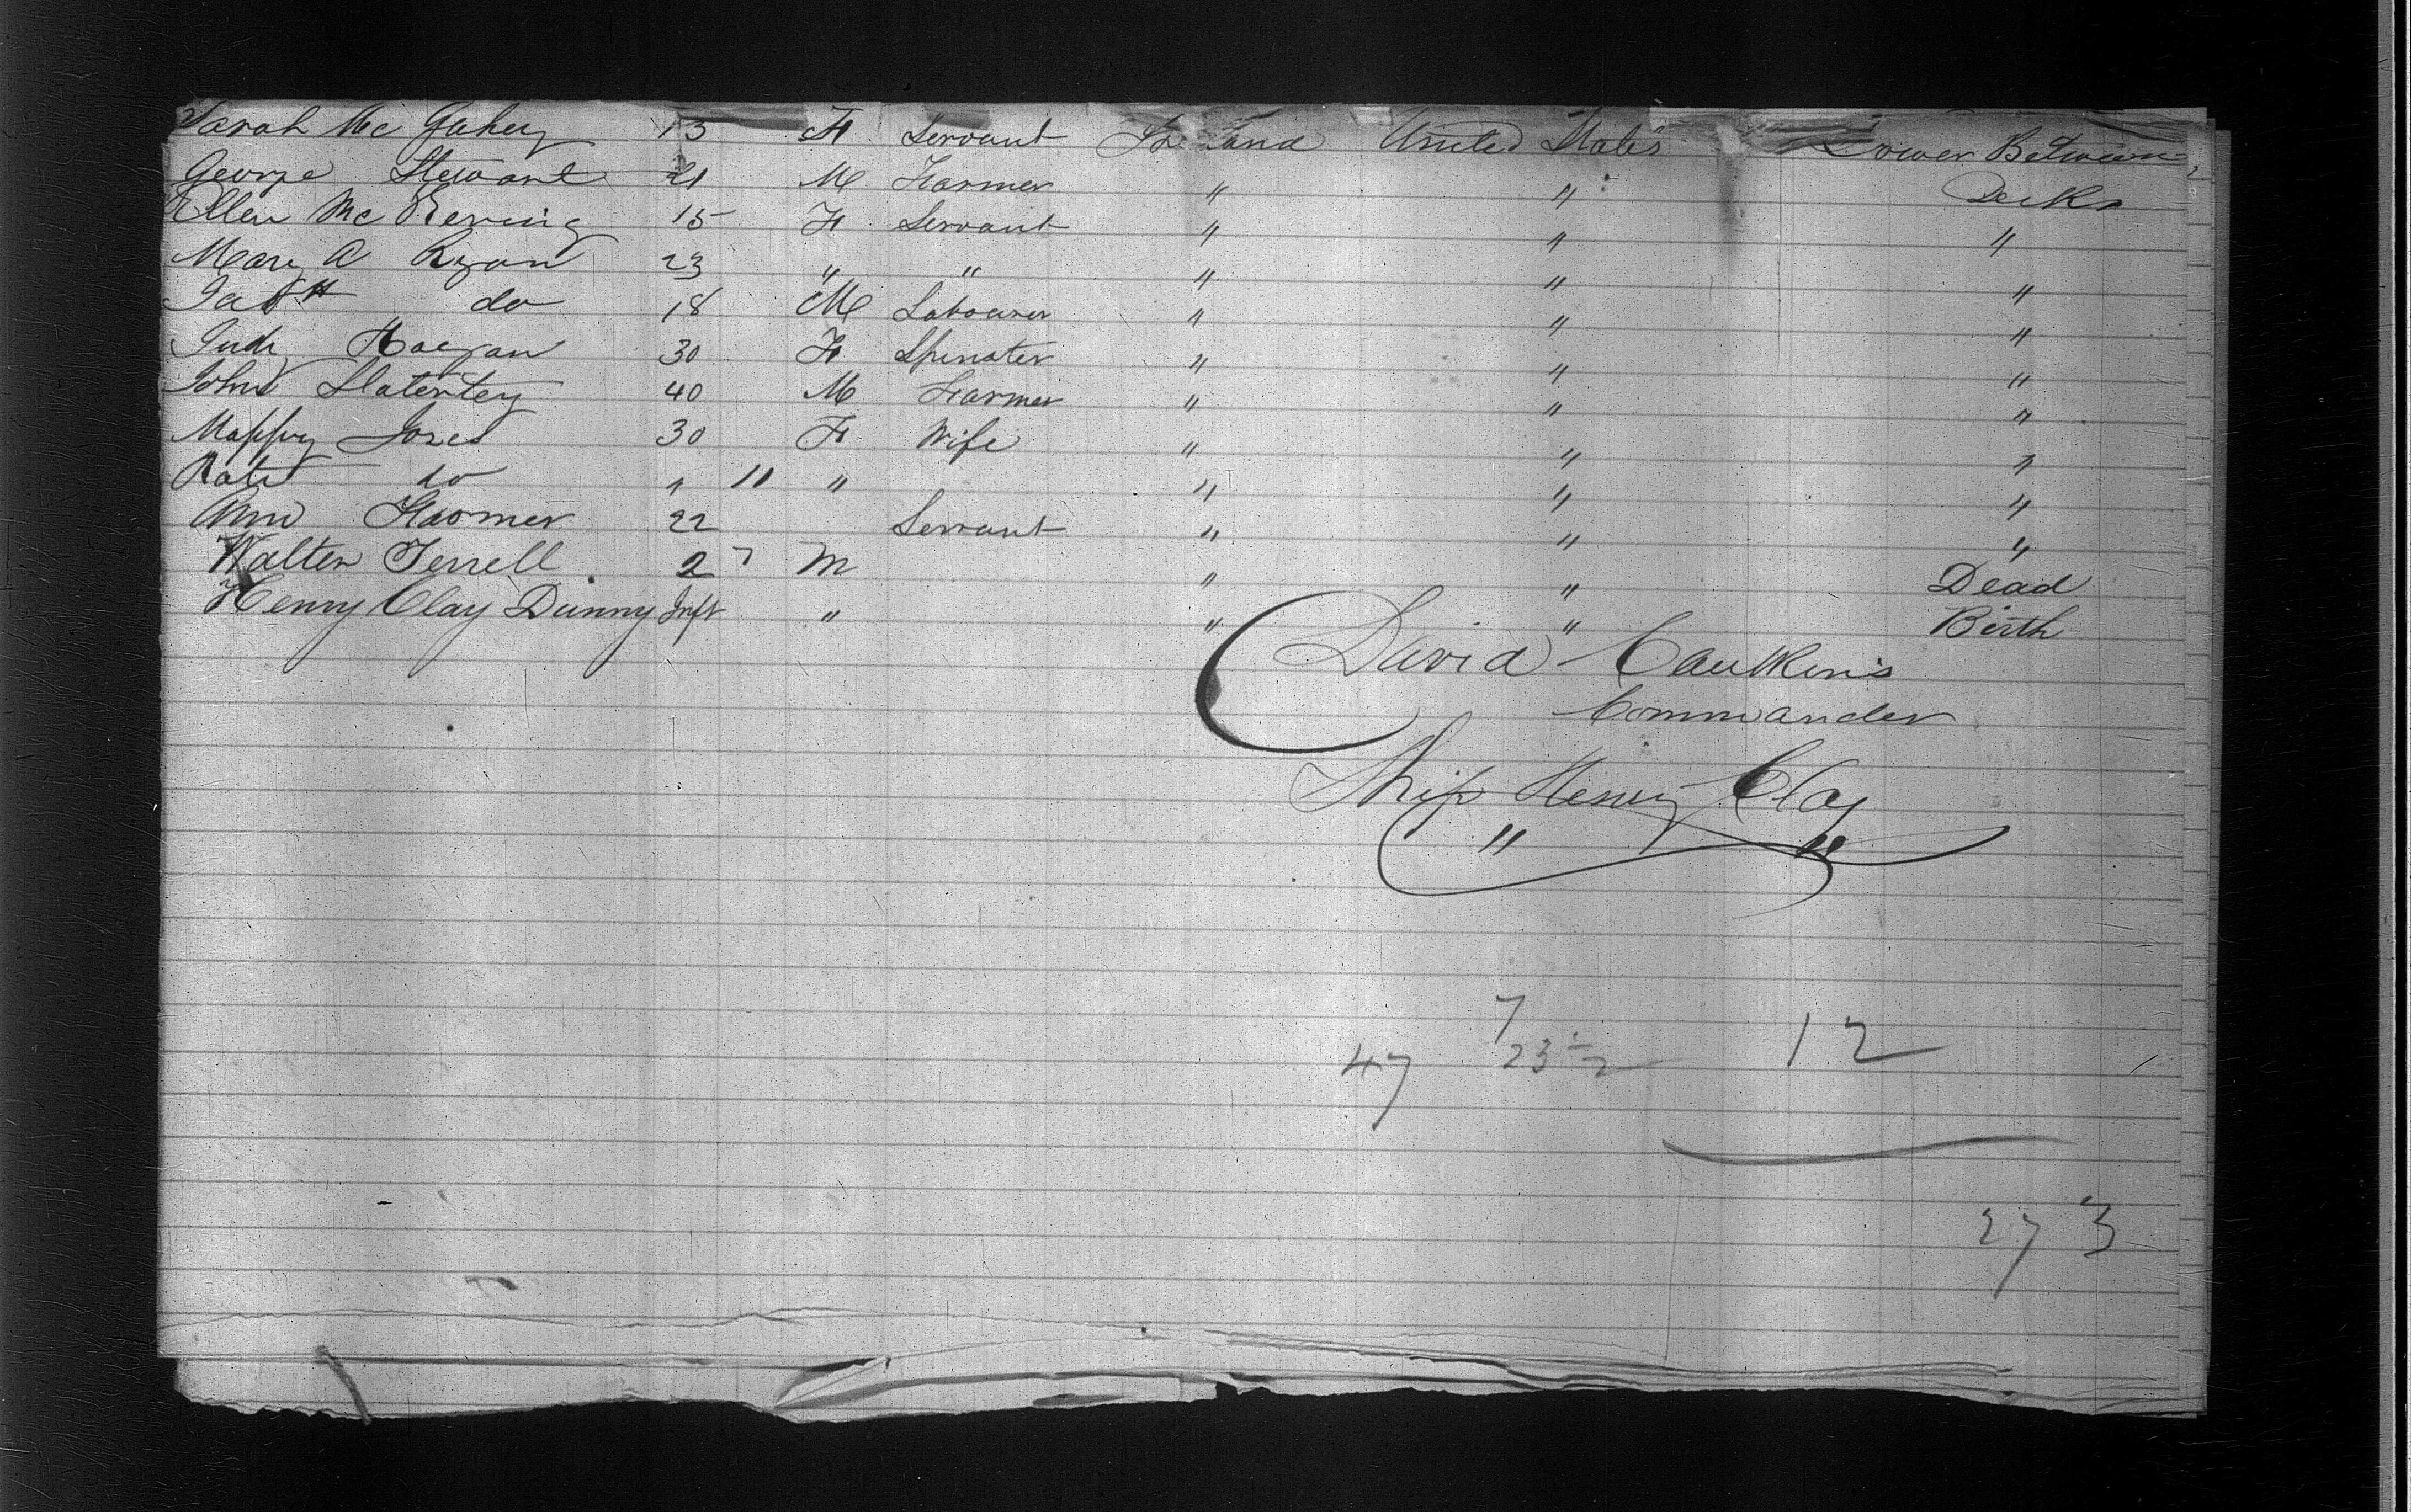 Sarah Mc Gahey 13 F Servant Ireland United States Lower Between
George Stewart 21 M Farmer " " Decks
Ellen Mc 15 F Servant " " "
Mary A Ryan 23 " " " " "
do 18 M Labourer " " "
Judy Hogan 30 F Spinster " " "
John Slatertey 40 M Farmer " " "
Jones 30 F Wife " " "
Kate do " 11 " " " "
Ann 22 Servant " " "
Walter Terrell 2 7 M " " Dead
Henry Clay Dunny Inft " " " Birth
David Caulkins
Commander
Ship Henry Clay
" "
7
47 23 12
27 3